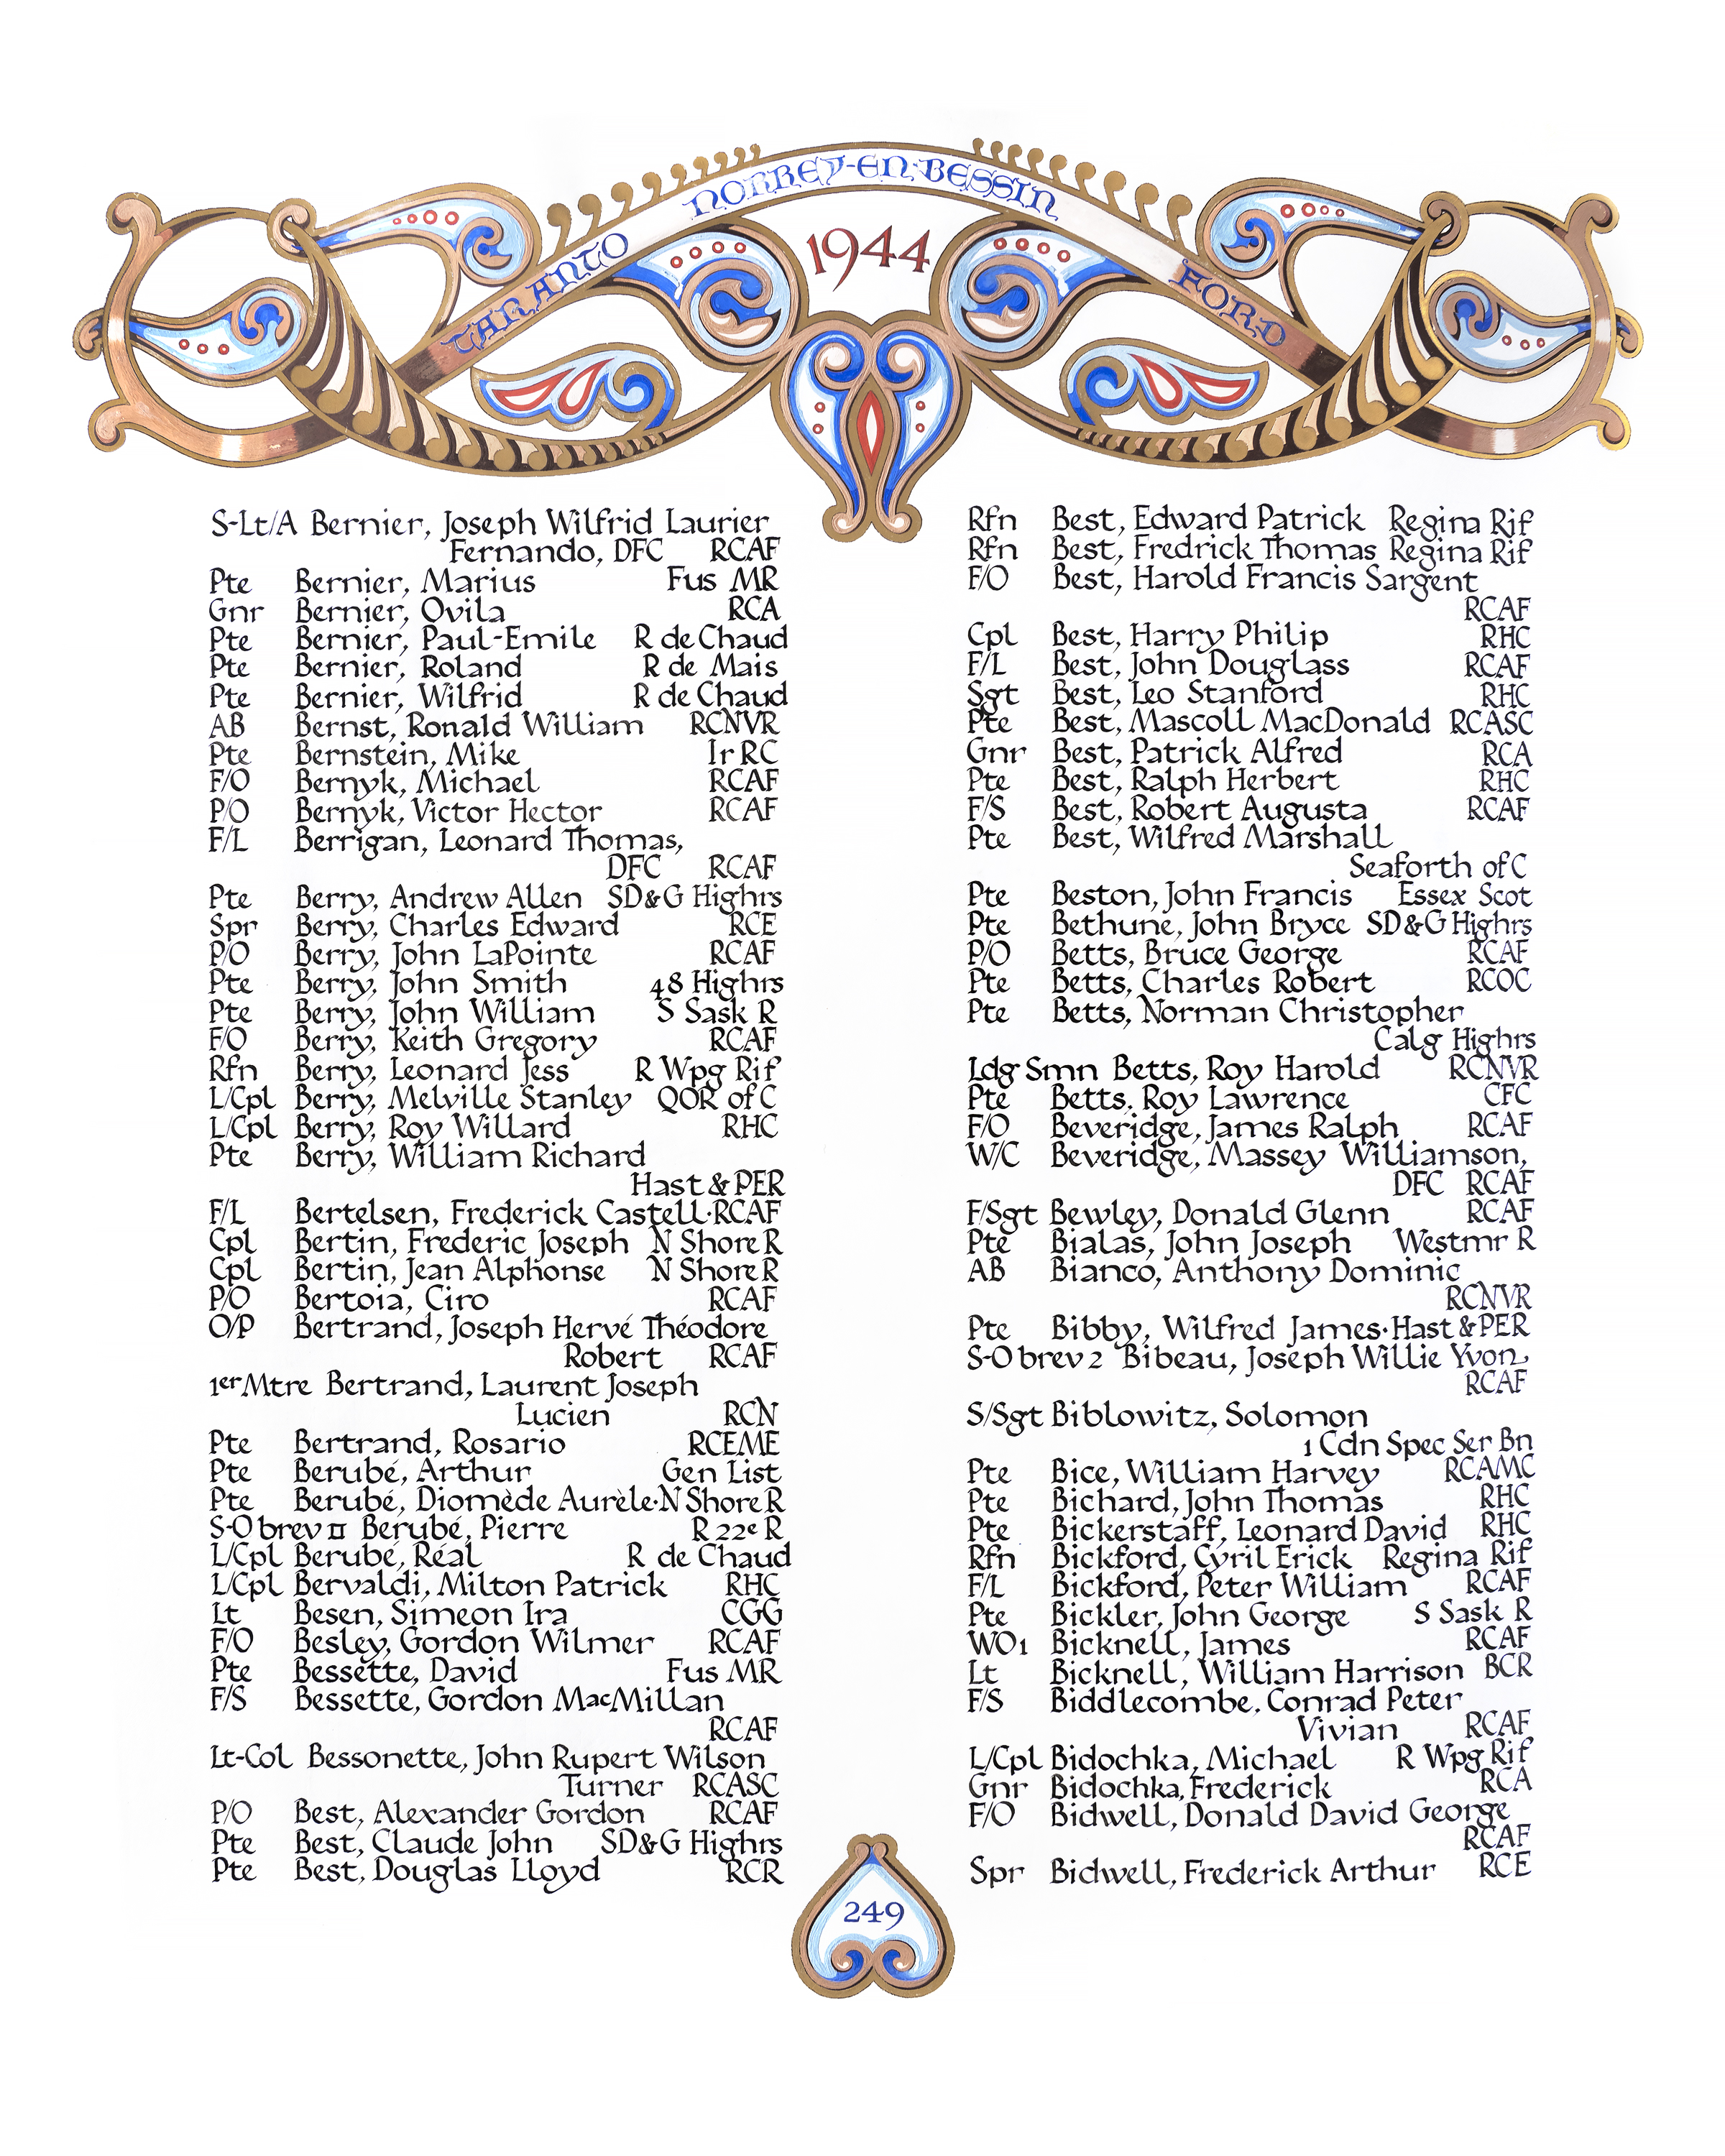 TARANTO
NORREY-EN-BESSIN
FORD
1944
S-Lt/A Bernier, Joseph Wilfrid Laurier
Fernando, DFC RCAF
Pte Bernier, Marius Fus MR
Gnr Bernier, Ovila RCA
Pte Bernier, Paul-Emile R de Chaud
Pte Bernier, Roland R de Mais
Pte Bernier, Wilfrid R de Chaud
AB Bernst, Ronald William RCNVR
Pte Bernstein, Mike Ir RC
F/O Bernyk, Michael RCAF
P/O Bernyk, Victor Hector RCAF
F/L Berrigan, Leonard Thomas,
DFC RCAF
Pte Berry, Andrew Allen SD&G Highrs
Spr Berry, Charles Edward RCE
P/O Berry, John LaPointe RCAF
Pte Berry, John Smith 48 Highrs
Pte Berry, John William S Sask R
F/O Berry, Keith Gregory RCAF
Rfn Berry, Leonard Jess R Wpg Rif
L/Cpl Berry, Melville Stanley QOR of C
L/Cpl Berry, Roy Willard RHC
Pte Berry, William Richard
Hast & PER
F/L Bertelsen, Frederick Castell·RCAF
Cpl Bertin, Frederic Joseph N Shore R
Cpl Bertin, Jean Alphonse N Shore R
P/O Bertoia, Ciro RCAF
O/P Bertrand, Joseph Hervé Théodore
Robert RCAF
1er Mtre Bertrand, Laurent Joseph
Lucien RCN
Pte Bertrand, Rosario RCEME
Pte Berubé, Arthur Gen List
Pte Berubé, Diomède Aurèle·N Shore R
S-O brev II Berubé, Pierre R 22e R
L/Cpl Berubé, Réal R de Chaud
L/Cpl Bervaldi, Milton Patrick RHC
Lt Besen, Simeon Ira CGG
F/O Besley, Gordon Wilmer RCAF
Pte Bessette, David Fus MR
F/S Bessette, Gordon MacMillan
RCAF
Lt-Col Bessonette, John Rupert Wilson
Turner RCASC
P/O Best, Alexander Gordon RCAF
Pte Best, Claude John SD&G Highrs
Pte Best, Douglas Lloyd RCR
Rfn Best, Edward Patrick Regina Rif
Rfn Best, Fredrick Thomas Regina Rif
F/O Best, Harold Francis Sargent
RCAF
Cpl Best, Harry Philip RHC
F/L Best, John Douglass RCAF
Sgt Best, Leo Stanford RHC
Pte Best, Mascoll MacDonald RCASC
Gnr Best, Patrick Alfred RCA
Pte Best, Ralph Herbert RHC
F/S Best, Robert Augusta RCAF
Pte Best, Wilfred Marshall
Seaforth of C
Pte Beston, John Francis Essex Scot
Pte Bethune, John Bryce SD&G Highrs
P/O Betts, Bruce George RCAF
Pte Betts, Charles Robert RCOC
Pte Betts, Norman Christopher
Calg Highrs
Ldg Smn Betts, Roy Harold RCNVR
Pte Betts, Roy Lawrence CFC
F/O Beveridge, James Ralph RCAF
W/C Beveridge, Massey Williamson,
DFC RCAF
F/Sgt Bewley, Donald Glenn RCAF
Pte Bialas, John Joseph Westmr R
AB Bianco, Anthony Dominic
RCNVR
Pte Bibby, Wilfred James·Hast & PER
S-O brev 2 Bibeau, Joseph Willie Yvon
RCAF
S/Sgt Biblowitz, Solomon
1 Cdn Spec Ser Bn
Pte Bice, William Harvey RCAMC
Pte Bichard, John Thomas RHC
Pte Bickerstaff, Leonard David RHC
Rfn Bickford, Cyril Erick Regina Rif
F/L Bickford, Peter William RCAF
Pte Bickler, John George S Sask R
WO1 Bicknell, James RCAF
Lt Bicknell, William Harrison BCR
F/S Biddlecombe, Conrad Peter
Vivian RCAF
L/Cpl Bidochka, Michael R Wpg Rif
Gnr Bidochka, Frederick RCA
F/O Bidwell, Donald David George
RCAF
Spr Bidwell, Frederick Arthur RCE
249